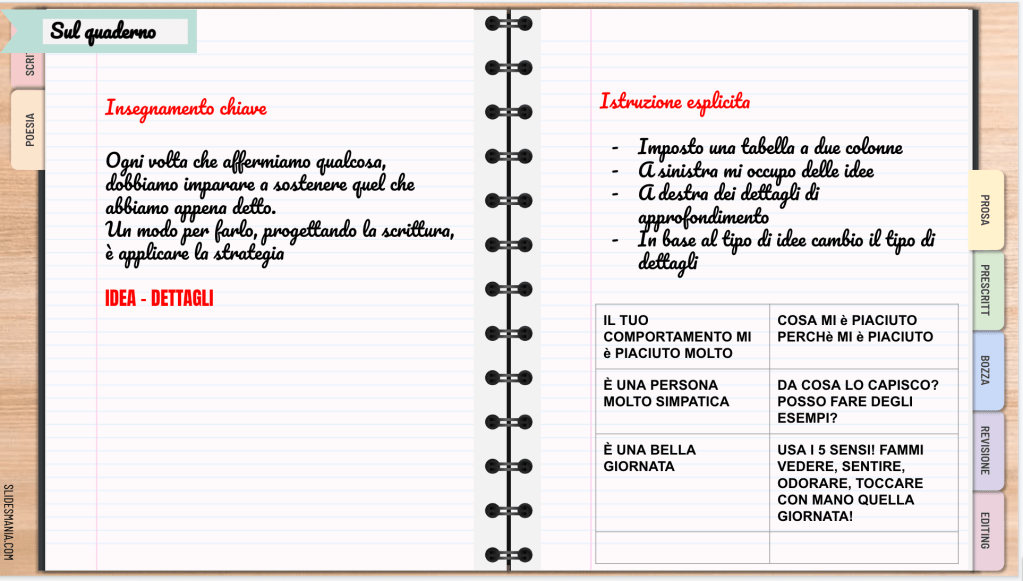 Sul quaderno
SCRI
POESIA
Insegnamento chiave
Ogni volta che affermiamo qualcosa,
dobbiamo imparare a sostenere quel che
abbiamo appena detto.
Un modo per farlo, progettando la scrittura,
è applicare la strategia
IDEA - DETTAGLI
SLIDESMANIA.COM
Istruzione esplicita
- Imposto una tabella a due colonne
- A sinistra mi occupo delle idee
- A destra dei dettagli di
approfondimento
- In base al tipo di idee cambio il tipo di
dettagli
IL TUO
COMPORTAMENTO MI
è PIACIUTO MOLTO
COSA MI è PIACIUTO
PERCHè MI è PIACIUTO
È UNA PERSONA
MOLTO SIMPATICA
DA COSA LO CAPISCO?
POSSO FARE DEGLI
ESEMPI?
È UNA BELLA
GIORNATA
USA I 5 SENSI! FAMMI
VEDERE, SENTIRE,
ODORARE, TOCCARE
CON MANO QUELLA
GIORNATA!
PROSA
PRESCRITT
BOZZA
REVISIONE
EDITING